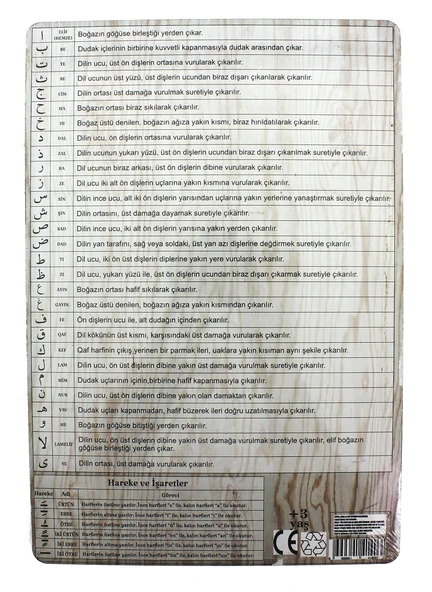 ا ELİF (HEMZE) Boğazın göğüse birleştiği yerden çıkar.
ب BE Dudak içlerinin birbirine kuvvetli kapanmasıyla dudak arasından çıkar.
ت TE Dil ucu, üst ön dişlerin ortasına vurularak çıkarılır.
ث SE Dil ucunun üst yüzü, üst dişlerin ucundan biraz dışarı çıkarılarak çıkarılır.
ج CİM Dilin ortası üst damağa vurulmak suretiyle çıkarılır.
ح HA Boğazın ortası biraz sıkılarak çıkarılır.
خ HI Boğaz üstü denilen, boğazın ağıza yakın kısmı, biraz hırıldatılarak çıkarılır.
د DAL Dil ucu, ön dişlerin ortasına vurularak çıkarılır.
ذ ZAL Dil ucunun yukarı yüzü, üst ön dişlerin ucundan biraz dışarı çıkarılmak suretiyle çıkarılır.
ر RA Dil ucunun biraz arkası, üst ön dişlerin dibine vurularak çıkarılır.
ز ZE Dil ucu iki alt ön dişlerin uçlarına yakın kısmına vurularak çıkarılır.
س SİN Dilin ince ucu, alt iki ön dişlerin yarısından uçlarına yakın yerlerine yanaştırmak suretiyle çıkarılır.
ش ŞIN Dilin ortasını, üst damağa dayamak suretiyle çıkarılır.
ص SAD Dilin ince ucu, iki alt ön dişlerin yarısına yakın yerden çıkarılır.
ض DAD Dilin yan tarafını, sağ veya soldaki, üst yan azı dişlerine değdirmek suretiyle çıkarılır.
ط TI Dil ucu, iki ön üst dişlerin diplerine yakın yere vurularak çıkarılır.
ظ ZI Dil ucu, yukarı yüzü ile, üst ön dişlerin ucundan biraz dışarı çıkarmak suretiyle çıkarılır.
ع AYIN Boğazın ortası hafif sıkılarak çıkarılır.
غ GAYIN Boğaz üstü denilen, boğazın ağıza yakın kısmından çıkarılır.
ف FE Ön dişlerin ucu ile, alt dudağın içinden çıkarılır.
ق QAF Dil kökünün üst kısmı, karşısındaki üst damağa vurularak çıkarılır.
ك KEF Qaf harfinin çıkış yerinen bir parmak ileri, uaklara yakın kısıman aynı şekile çıkarılır.
ل LAM Dilin ucu, ön üst dişlerin dibine yakın üst damağa vurulmak suretiyle çıkarılır.
م MİM Dudak uçlarının içinin,birbirine hafif kapanmasıyla çıkarılır.
ن NUN Dilin ucu, üst ön dişlerin dibine yakın olan damaktan çıkarılır.
هـ VAV Dudak uçları kapanmadan, hafif büzerek ileri doğru uzatılmasıyla çıkarılır.
و HE Boğazın göğüse bitiştiği yerden çıkarılır.
لا LAMELİF Dilin ucu, ön üst dişlerin dibine yakın üst damağa vurulmak suretiyle çıkarılır, elif boğazın
göğüse birleştiği yerden çıkar.
ى YE Dilin ortası, üst damağa vurularak çıkarılır.
Hareke ve İşaretler
Hareke Adı Görevi
ÜSTÜN Harflerin üstüne yazılır. İnce harfleri "e" ile, kalın harfleri "a" ile okutur.
ESRE Harflerin altına yazılır. İnce harfleri "i" ile, kalın harfleri "ı" ile okutur.
ÖTRE Harflerin üstüne yazılır. İnce harfleri "ü" ile, kalın harfleri "u" ile okutur.
İKİ ÜSTÜN Harflerin üstüne yazılır. İnce harfleri "en" ile, kalın harfleri "an" ile okutur.
İKİ ESRE Harflerin altına yazılır. İnce harfleri "in" ile, kalın harfleri "ın" ile okutur.
İKİ ÖTRE Harflerin üstüne yazılır. İnce harfleri "ün" ile, kalın harfleri "un" ile okutur.
+3
yaş
CE